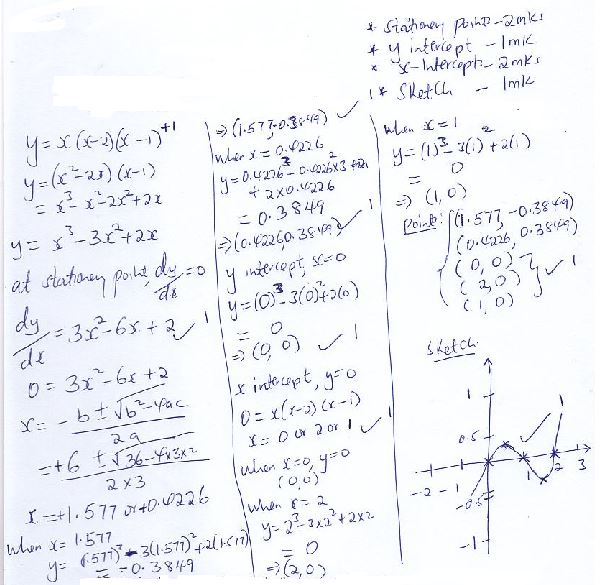 * Stationery points - 2mks
* y intercept - 1mk
* x-intercepts - 2mks
* Sketch - 1mk
y = x(x-2)(x-1) +1
y = (x² - 2x)(x-1)
= x³ - x² - 2x² + 2x
y = x³ - 3x² + 2x
at stationery point, dy/dx = 0
dy/dx = 3x² - 6x + 2 ✓ 1
0 = 3x² - 6x + 2
x = -b ± √b² - 4ac / 2a
= +6 ± √36 - 4x3x2 / 2 x 3
x = +1.577 or +0.4226
when x = 1.577
y = (1.577)³ - 3(1.577)² + 2(1.577)
= -0.3849
⇒ (1.577, -0.3849) ✓ 1
when x = 0.4226
y = 0.4226³ - 0.4226² x3
+ 2 x 0.4226
= 0.3849
⇒ (0.4226, 0.3849) ✓ 1
y intercept, x = 0
y = (0)³ - 3(0)² + 2(0)
= 0
⇒ (0, 0) ✓ 1
x intercept, y = 0
0 = x(x-2)(x-1)
x = 0 or 2 or 1 ✓ 1
when x = 0, y = 0
(0,0)
when x = 2
y = 2³ - 3x2² + 2x2
= 0
⇒ (2, 0)
when x = 1
y = (1)³ - 3(1)² + 2(1)
= 0
⇒ (1, 0)
Points: (1.577, -0.3849)
(0.4226, 0.3849)
(0, 0)
(2, 0) ✓ 1
(1, 0)
Sketch
1
1
0.5 ✓
-1
1 2 3
-2 -1
-0.5
-1